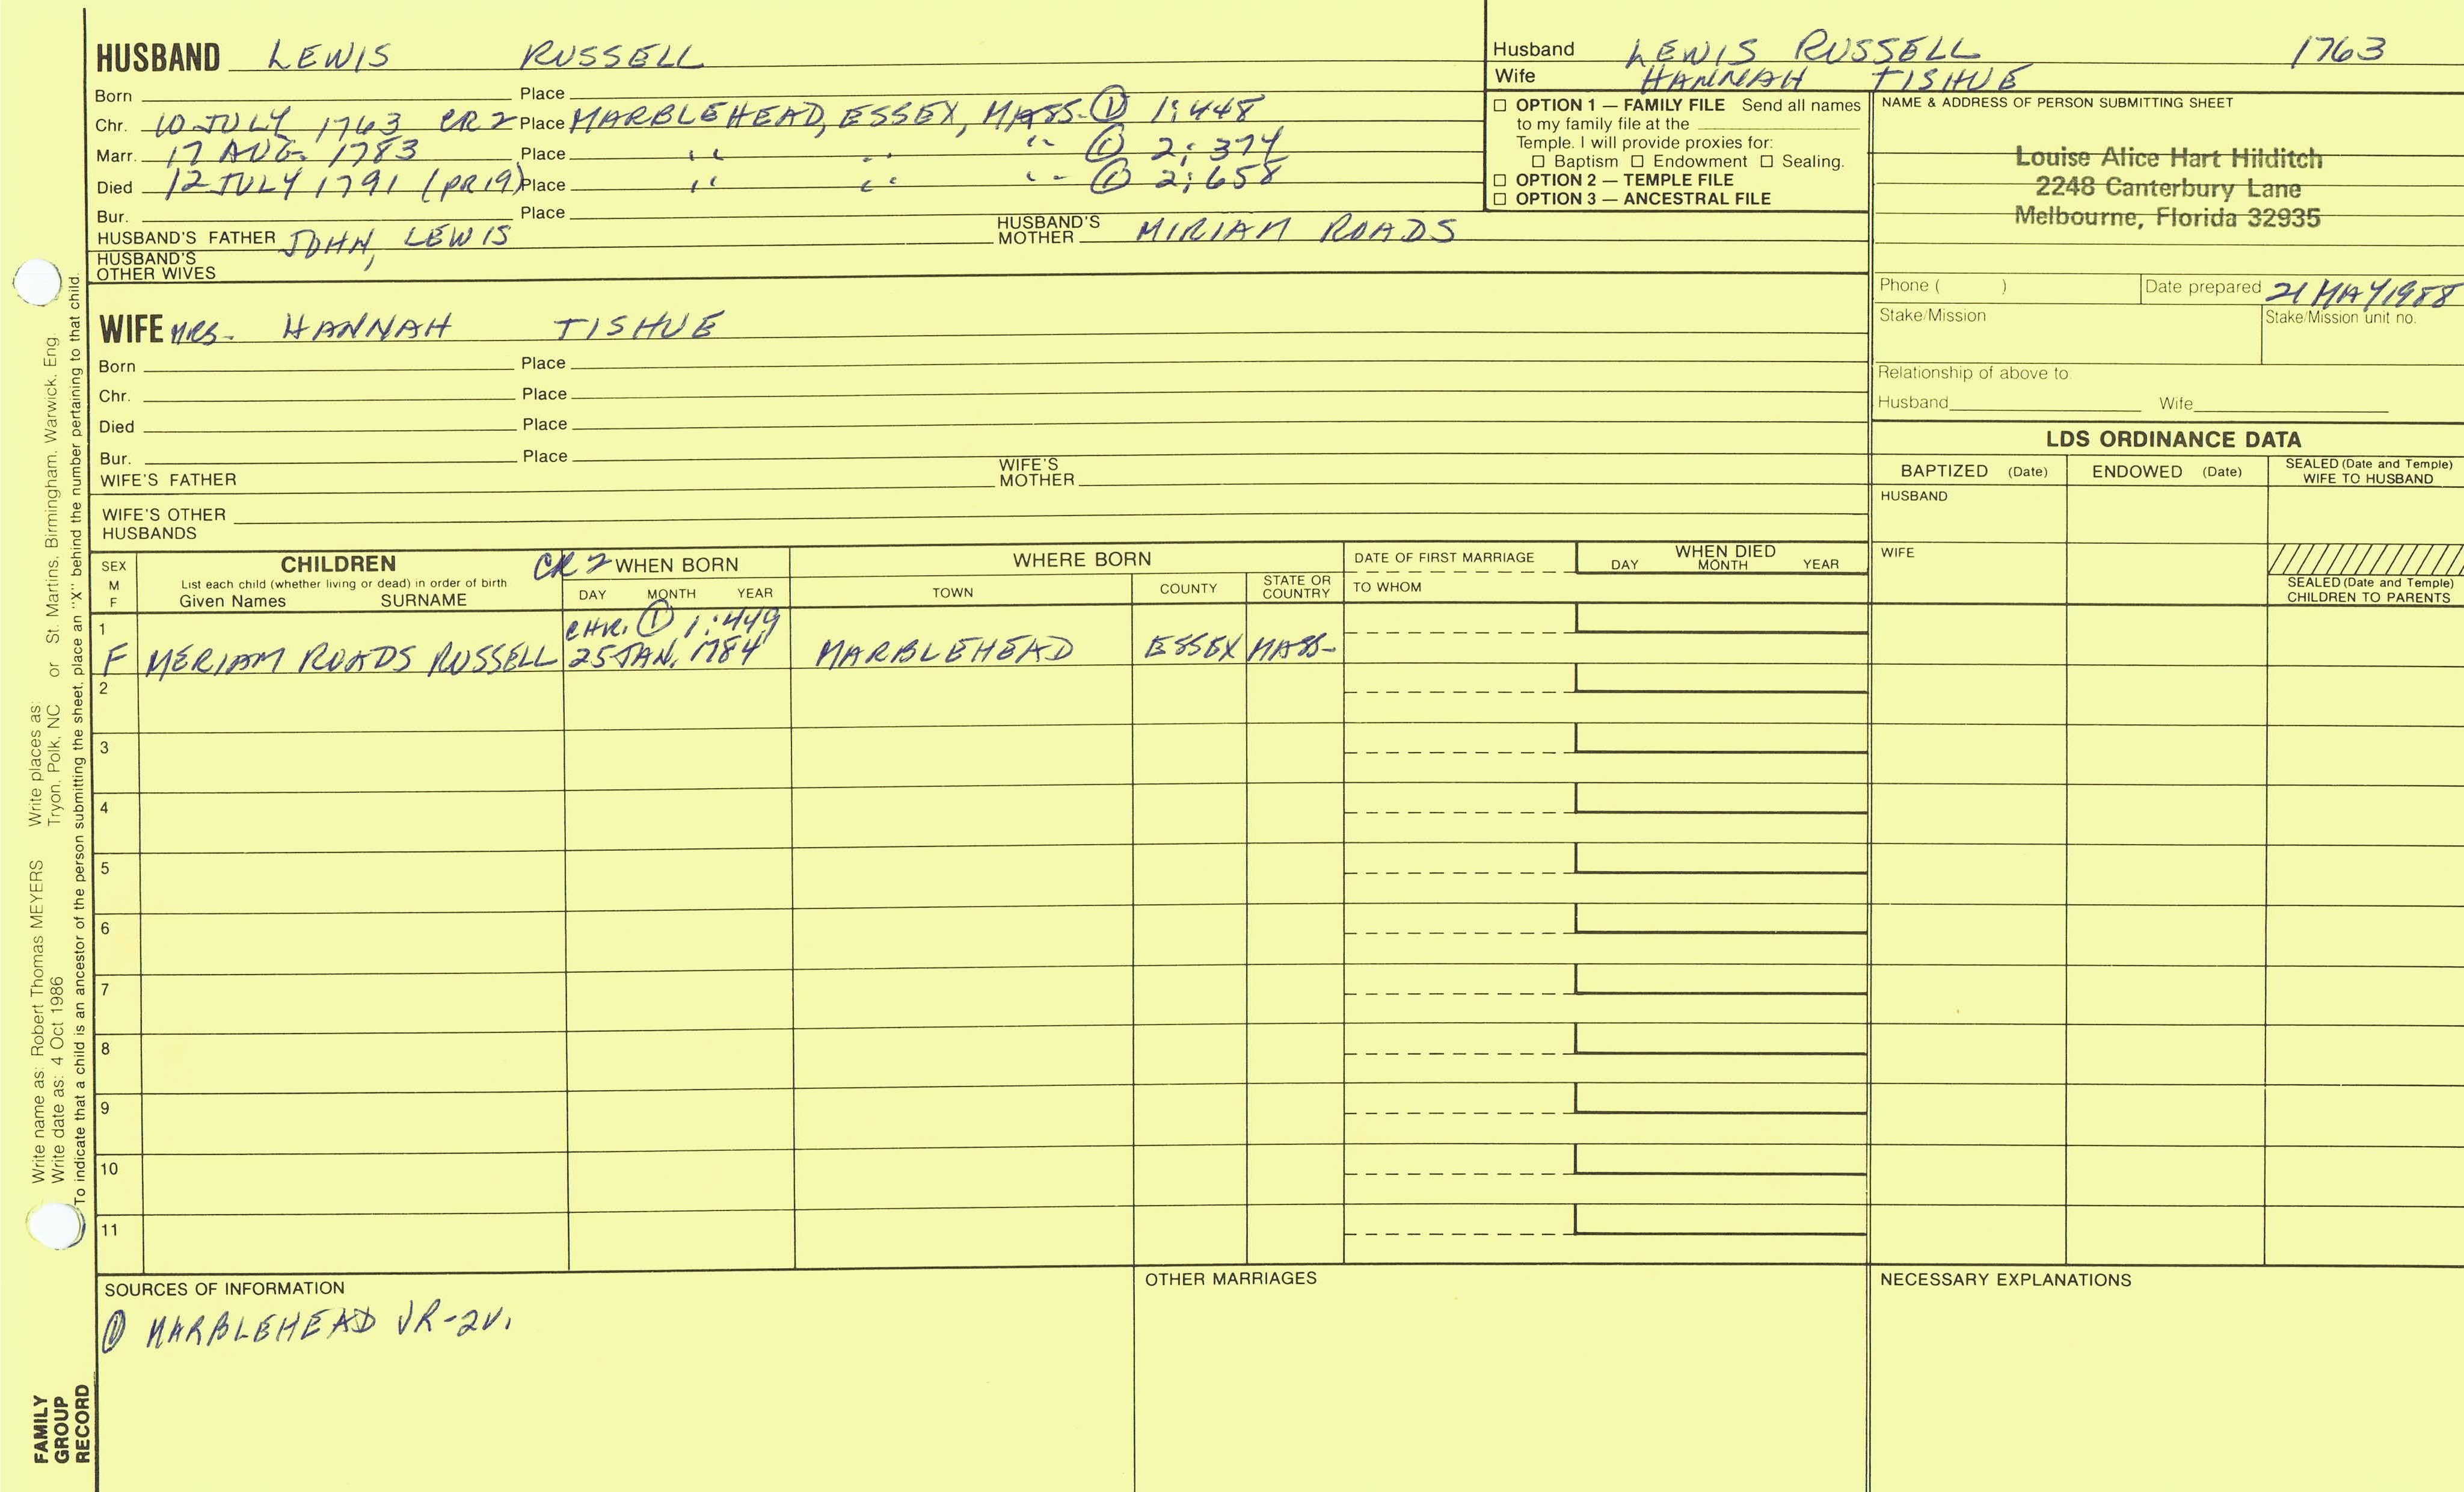 HUSBAND LEWIS RUSSELL
Born Place
Chr. 10 JULY 1763 CR2 Place MARBLEHEAD, ESSEX, MASS. ① 1:448
Marr. 17 AUG. 1783 Place " " " ① 2:374
Died 12 JULY 1791 (PR19) Place " " " ① 2:658
Bur. Place
HUSBAND'S FATHER JOHN, LEWIS HUSBAND'S MOTHER MIRIAM ROADS
HUSBAND'S
OTHER WIVES
Husband LEWIS RUSSELL 1763
Wife HANNAH TISHUE
☐ OPTION 1 — FAMILY FILE Send all names
to my family file at the
Temple. I will provide proxies for:
☐ Baptism ☐ Endowment ☐ Sealing.
☐ OPTION 2 — TEMPLE FILE
☐ OPTION 3 — ANCESTRAL FILE
NAME & ADDRESS OF PERSON SUBMITTING SHEET
Louise Alice Hart Hilditch
2248 Canterbury Lane
Melbourne, Florida 32935
Phone ( ) Date prepared 21 MAY 1988
Stake/Mission Stake/Mission unit no.
Relationship of above to:
Husband Wife
WIFE MRS. HANNAH TISHUE
Born Place
Chr. Place
Died Place
Bur. Place
WIFE'S FATHER WIFE'S MOTHER
WIFE'S OTHER
HUSBANDS
LDS ORDINANCE DATA
BAPTIZED (Date) ENDOWED (Date) SEALED (Date and Temple) WIFE TO HUSBAND
HUSBAND
WIFE
SEALED (Date and Temple)
CHILDREN TO PARENTS
SEX
M
F
CHILDREN
List each child (whether living or dead) in order of birth
Given Names SURNAME
CR 2 WHEN BORN
DAY MONTH YEAR
WHERE BORN
TOWN COUNTY STATE OR COUNTRY
DATE OF FIRST MARRIAGE
TO WHOM
WHEN DIED
DAY MONTH YEAR
1 CHR. ① 1:449
F MERIAM ROADS RUSSELL 25 JAN. 1784 MARBLEHEAD ESSEX MASS-
2
3
4
5
6
7
8
9
10
11
SOURCES OF INFORMATION
① MARBLEHEAD VR-2V.
OTHER MARRIAGES
NECESSARY EXPLANATIONS
Write name as: Robert Thomas MEYERS Write places as:
Write date as: 4 Oct 1986 Tryon, Polk, NC or St. Martins, Birmingham, Warwick, Eng.
To indicate that a child is an ancestor of the person submitting the sheet, place an "X" behind the number pertaining to that child.
FAMILY
GROUP
RECORD